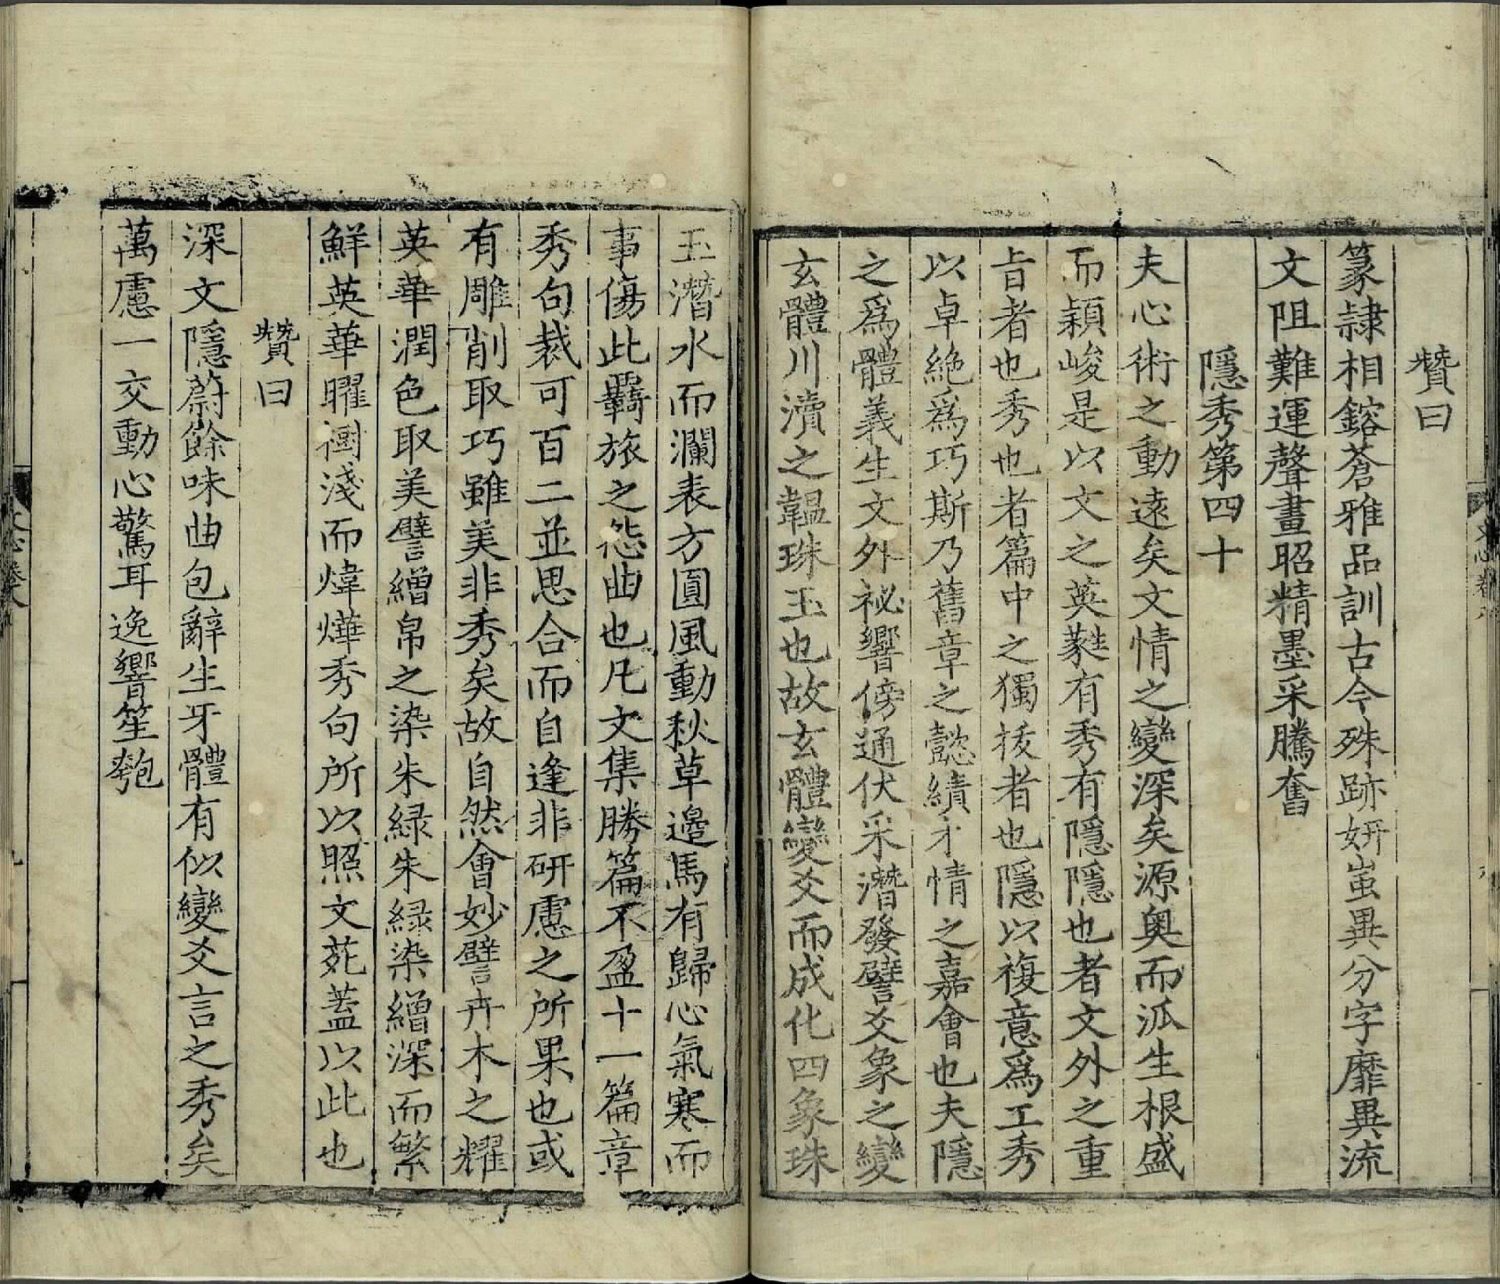 贊曰
篆隷相鎔蒼雅品訓古今殊跡妍蚩異分字靡異流
文阻難運聲畫昭精墨采騰奮
隱秀第四十
夫心術之動遠矣文情之變深矣源奧而泒生根盛
而穎峻是以文之英蕤有秀有隱隱也者文外之重
旨者也秀也者篇中之獨拔者也隱以複意爲工秀
以卓絶爲巧斯乃舊章之懿績才情之嘉會也夫隱
之爲體義生文外祕響傍通伏采潛發譬爻象之變
玄體川瀆之韞珠玉也故玄體變爻而成化四象珠
玉潛水而瀾表方圓風動秋草邊馬有歸心氣寒而
事傷此羇旅之怨曲也凡文集勝篇不盈十一篇章
秀句裁可百二並思合而自逢非研慮之所果也或
有雕削取巧雖美非秀矣故自然會妙譬卉木之耀
英華潤色取美譬繒帛之染朱緑朱緑染繒深而繁
鮮英華曜樹淺而煒燁秀句所以照文苑蓋以此也
贊曰
深文隱蔚餘味曲包辭生牙體有似變爻言之秀矣
萬慮一交動心驚耳逸響笙匏
文心卷八
九